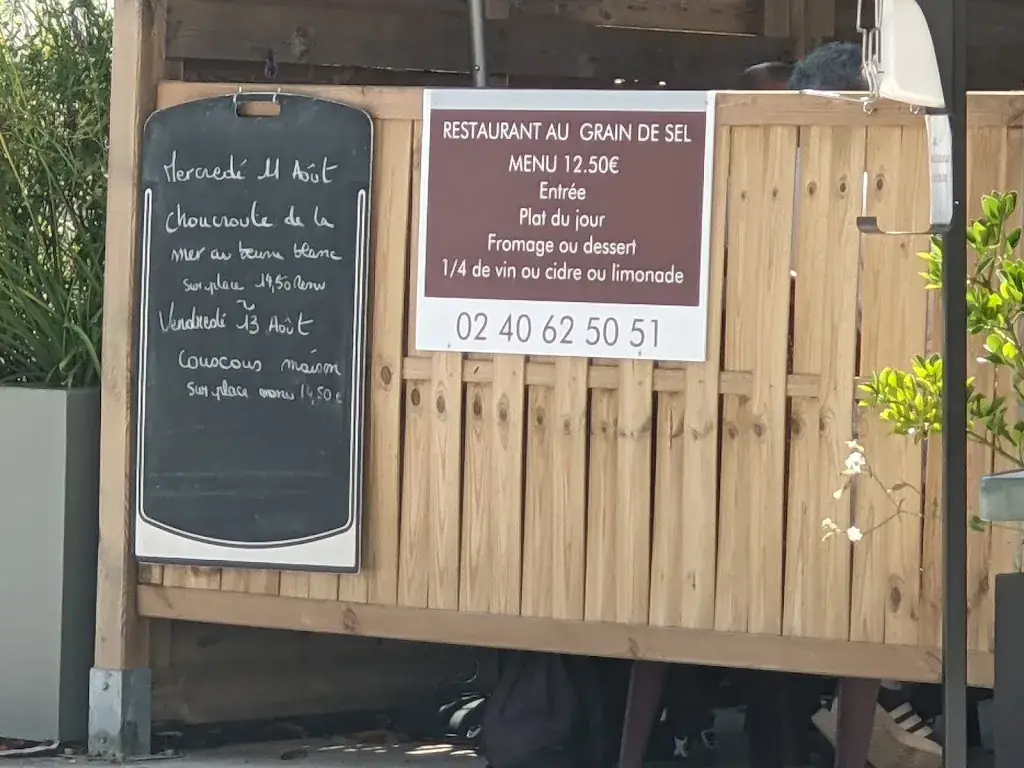 Mercredi 11 Août
Choucroute de la
mer au beurre blanc
sur place 14,50 menu
Vendredi 13 Août
Couscous maison
sur place menu 14,50 €
RESTAURANT AU GRAIN DE SEL
MENU 12.50€
Entrée
Plat du jour
Fromage ou dessert
1/4 de vin ou cidre ou limonade
02 40 62 50 51